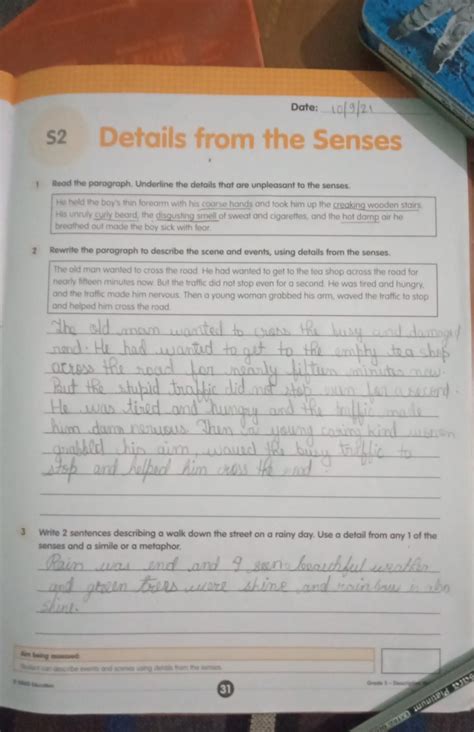 Date: 10/9/21
S2 Details from the Senses
1 Read the paragraph. Underline the details that are unpleasant to the senses.
He held the boy's thin forearm with his coarse hands and took him up the creaking wooden stairs.
His unruly curly beard, the disgusting smell of sweat and cigarettes, and the hot damp air he
breathed out made the boy sick with fear.
2 Rewrite the paragraph to describe the scene and events, using details from the senses.
The old man wanted to cross the road. He had wanted to get to the tea shop across the road for
nearly fifteen minutes now. But the traffic did not stop even for a second. He was tired and hungry,
and the traffic made him nervous. Then a young woman grabbed his arm, waved the traffic to stop
and helped him cross the road.
The old man wanted to cross the busy and damage
road. He had wanted to get to the empty tea shop
across the road for nearly fifteen minutes now.
But the stupid traffic did not stop even for a second.
He was tired and hungry and the traffic made
him damn nervous. Then a young caring kind women
grabbled his arm, waved the busy traffic to
stop and helped him cross the road.
3 Write 2 sentences describing a walk down the street on a rainy day. Use a detail from any 1 of the
senses and a simile or a metaphor.
Rain was end and I seen beautiful weather
and green trees were shine and rainbow is also
shine.
Aim being assessed:
Student can describe events and scenes using details from the senses.
31
Grade 5 - Descriptive
Platinum